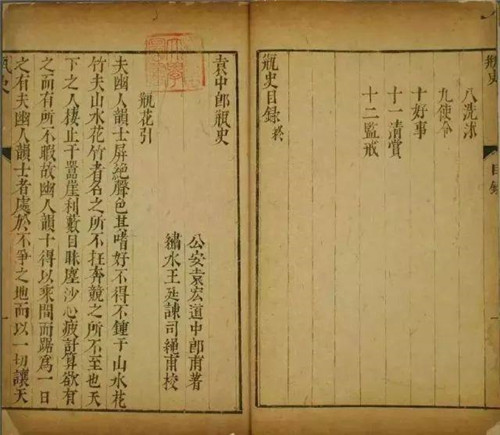 瓶史 目錄
八洗沐
九使令
十好事
十一清賞
十二監戒
瓶史目錄終
袁中郎瓶史
公安袁宏道中郎甫著
繡水王廷諫司繩甫校
瓶花引
夫幽人韻士屏絕聲色其嗜好不得不鍾于山水花
竹夫山水花竹者名之所不在奔競之所不至也天
下之人棲止于囂崖利藪目眯塵沙心疲計算欲有
之而有所不暇故幽人韻士得以乘間而踞為一日
之有夫幽人韻士者處於不爭之地而以一切讓天
瓶史